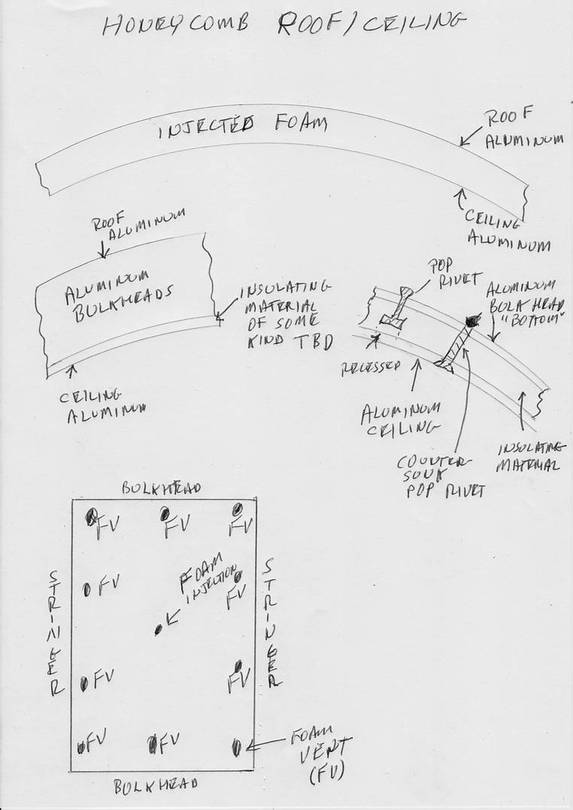 HONEYCOMB ROOF/CEILING
INJECTED FOAM
ROOF
ALUMINUM
CEILING
ALUMINUM
ROOF
ALUMINUM
ALUMINUM
BULKHEADS
INSULATING
MATERIAL
OF SOME
KIND TBD
CEILING
ALUMINUM
POP
RIVET
ALUMINUM
BULK HEAD
"BOTTOM"
RECESSED
ALUMINUM
CEILING
COUNTER
SUNK
POP RIVET
INSULATING
MATERIAL
BULKHEAD
FV FV FV
STRINGER
FV
FOAM
INJECTION
FV
STRINGER
FV
FV
FV
FV
FOAM
VENT
(FV)
BULKHEAD